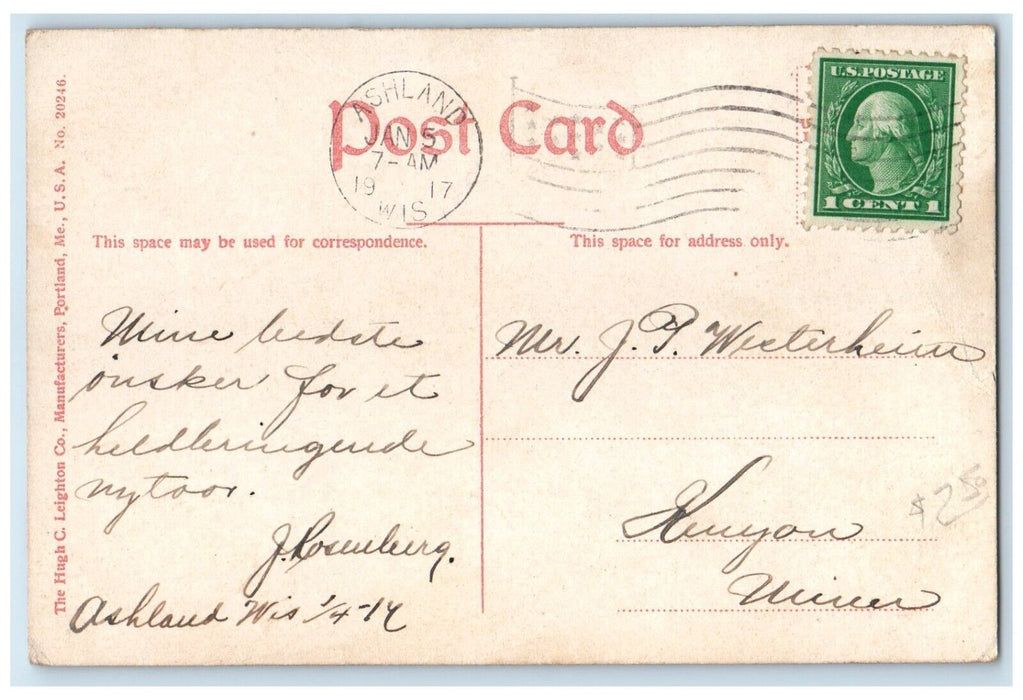 The Hugh C. Leighton Co., Manufacturers, Portland, Me., U. S. A. No. 20246.
Post Card
ASHLAND
JAN 5
7-AM
19 17
WIS
U.S. POSTAGE
1 CENT 1
This space may be used for correspondence.
This space for address only.
Mine bedste
önsker for et
heldbringende
nytaar.
J. Rosenberg.
Ashland Wis 1/4-17
Mr. J. P. Westerheim
Kenyon
Minn
$2.50